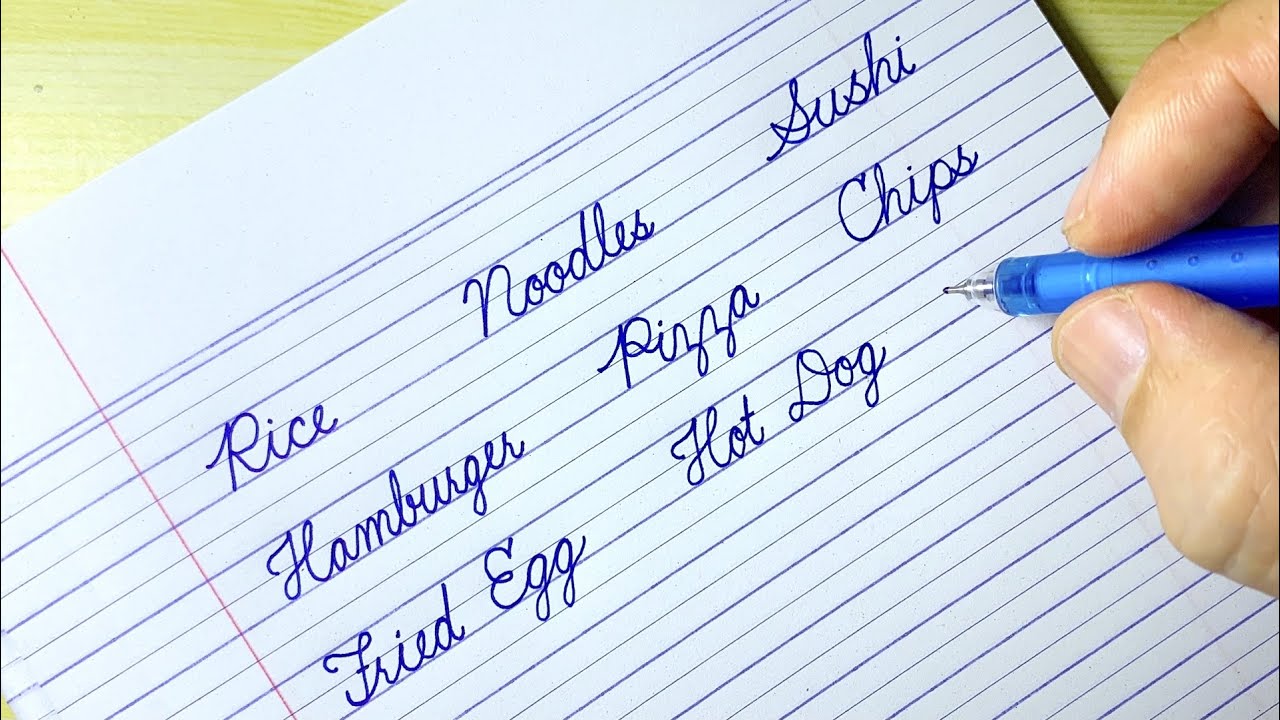 Rice Noodles Sushi
Hamburger Pizza Chips
Fried Egg Hot Dog